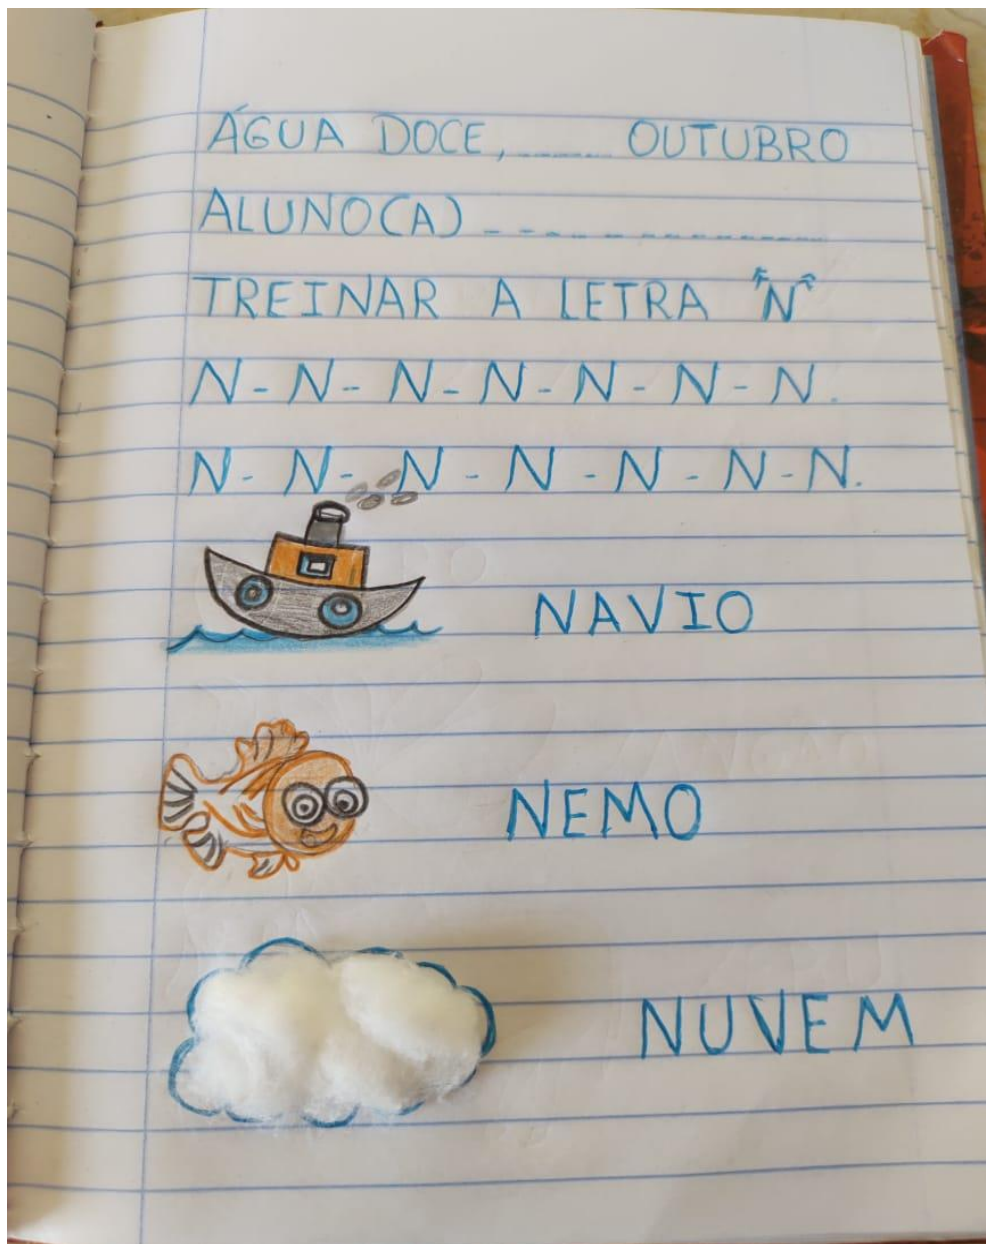 ÁGUA DOCE, ------ OUTUBRO
ALUNO(A) ---------------
TREINAR A LETRA "N"
N - N - N - N - N - N - N.
N - N - N - N - N - N - N.
NAVIO
NEMO
NUVEM